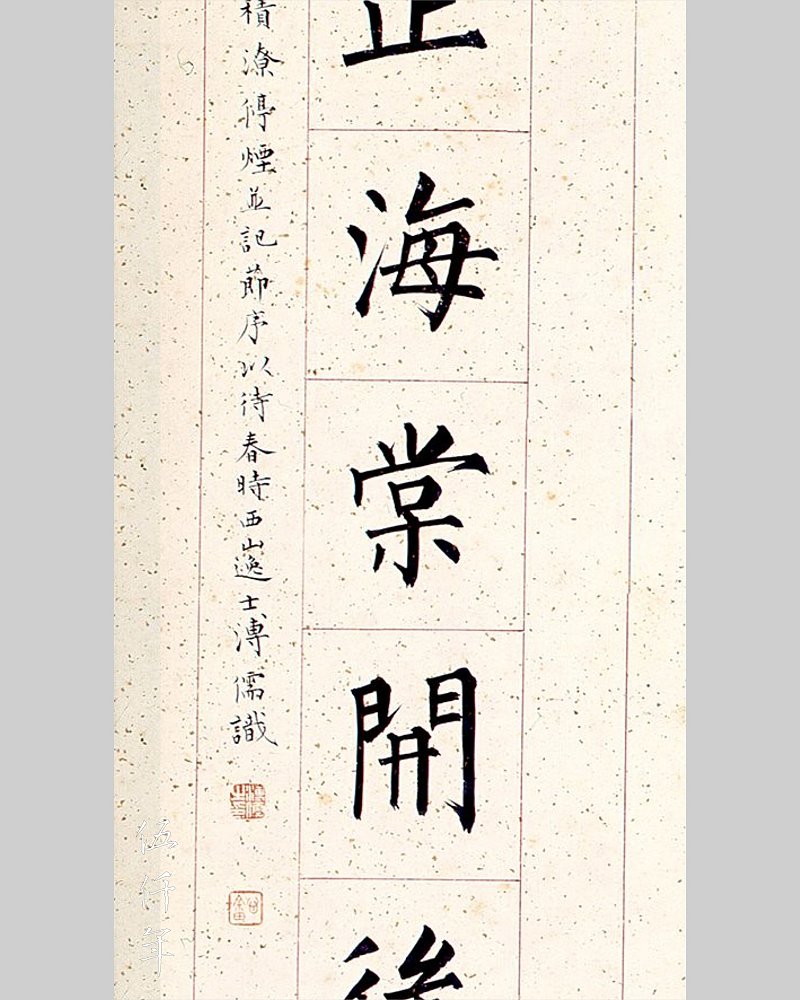 正海棠開後
積潦停煙並記節序以待春時西山逸士溥儒識
伍仟年